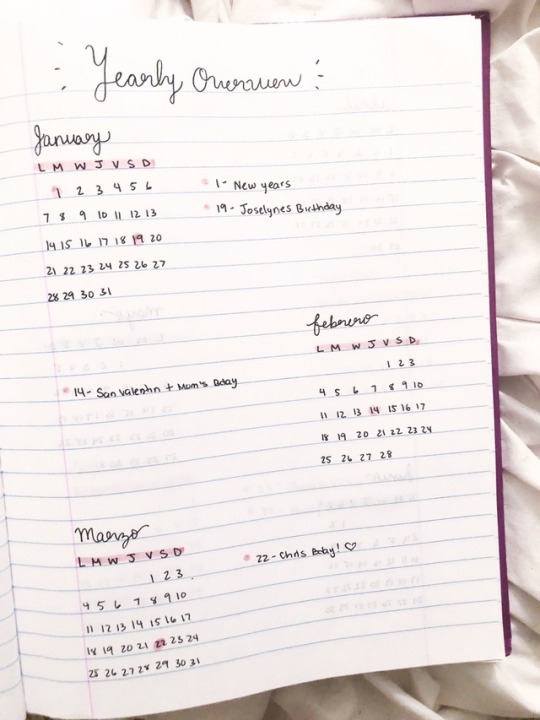 Yearly Overview
January
L M W J V S D
1 2 3 4 5 6
7 8 9 10 11 12 13
14 15 16 17 18 19 20
21 22 23 24 25 26 27
28 29 30 31
1- New years
19- Joselynes Birthday
febrero
L M W J V S D
1 2 3
4 5 6 7 8 9 10
11 12 13 14 15 16 17
18 19 20 21 22 23 24
25 26 27 28
14- San Valentin + Mom's Bday
Maerzo
L M W J V S D
1 2 3
4 5 6 7 8 9 10
11 12 13 14 15 16 17
18 19 20 21 22 23 24
25 26 27 28 29 30 31
22- Chris Bday! ♡